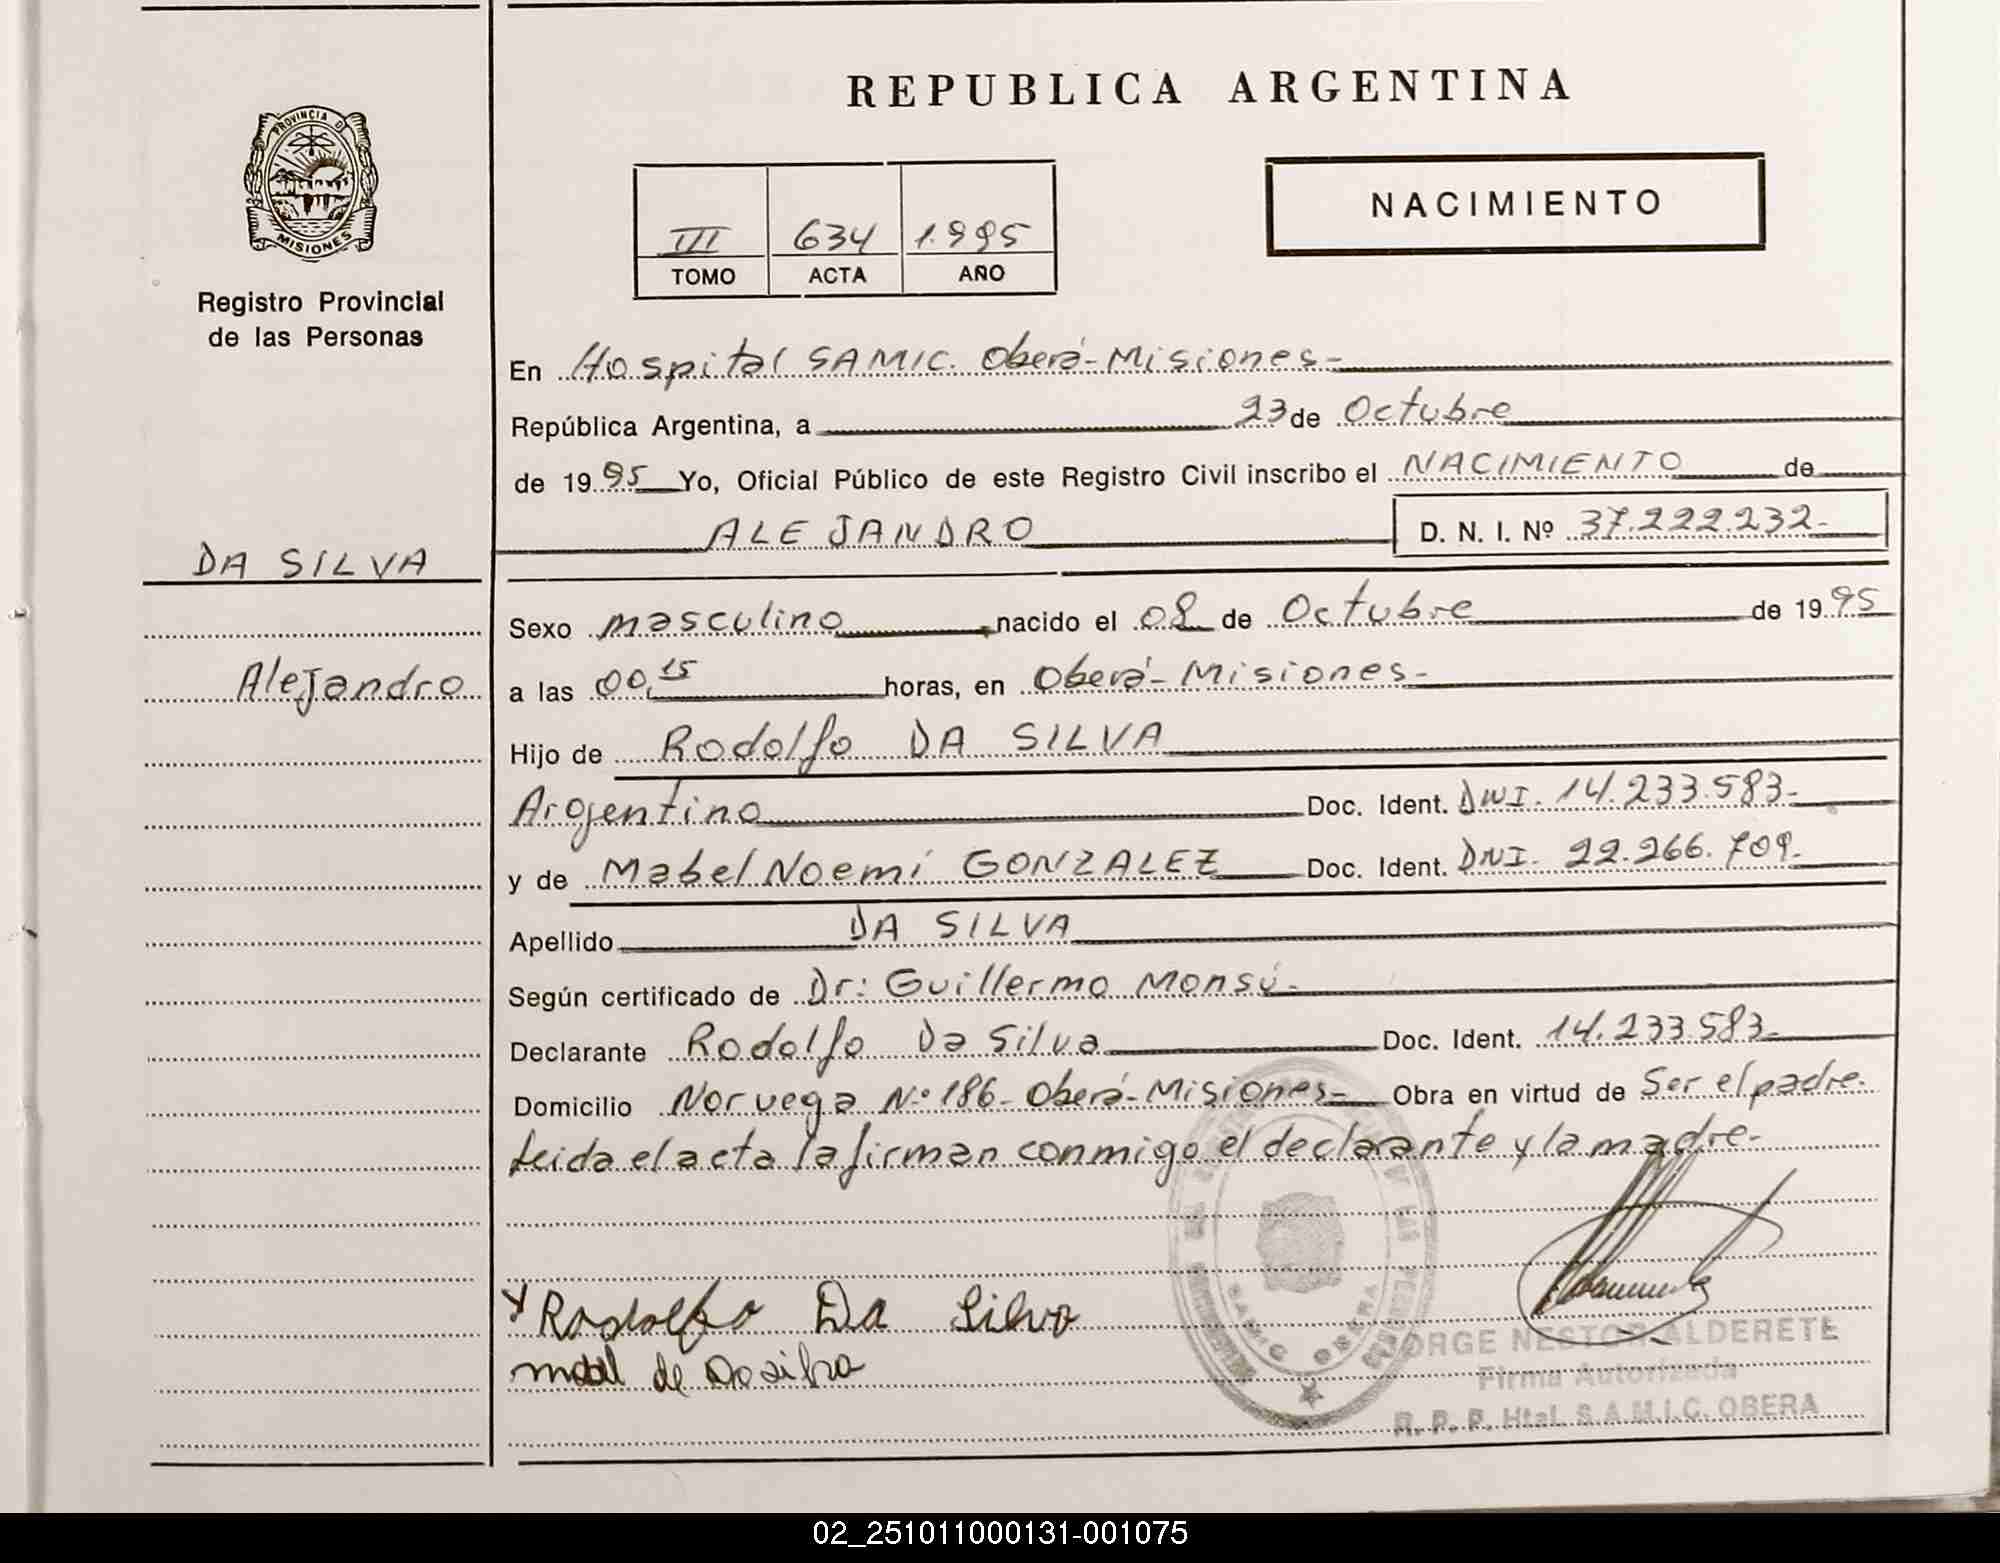 REPUBLICA ARGENTINA
PROVINCIA D
MISIONES
Registro Provincial
de las Personas
NACIMIENTO
III 634 1.995
TOMO ACTA AÑO
En Hospital SAMIC. Oberá-Misiones-
República Argentina, a 23 de Octubre
de 1995 Yo, Oficial Público de este Registro Civil inscribo el NACIMIENTO de
ALEJANDRO D. N. I. Nº 37.222.232-
DA SILVA
Sexo masculino nacido el 08 de Octubre de 1995
Alejandro
a las 00,15 horas, en Oberá-Misiones-
Hijo de Rodolfo DA SILVA
Argentino Doc. Ident. DNI. 14.233.583-
y de Mabel Noemí GONZALEZ Doc. Ident. DNI. 22.266.709-
Apellido DA SILVA
Según certificado de Dr: Guillermo Monsú-
Declarante Rodolfo Da Silva Doc. Ident. 14.233.583-
Domicilio Noruega Nº 186- Oberá-Misiones- Obra en virtud de Ser el padre.
Leida el acta la firman conmigo el declarante y la madre-
Rodolfo Da Silva
de Da silva
SAMIC OBERA
JORGE NESTOR ALDERETE
Firma Autorizada
R. P. P. Htal. S.A.M.I.C. OBERA
02_251011000131-001075